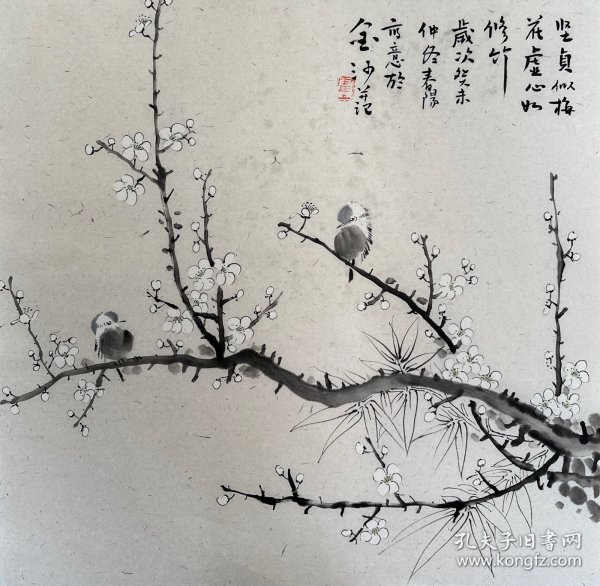 坚贞似梅
花虚心如
修竹
岁次癸未
仲冬春阳
写意於
金沙并记
孔夫子旧书网
www.kongfz.com